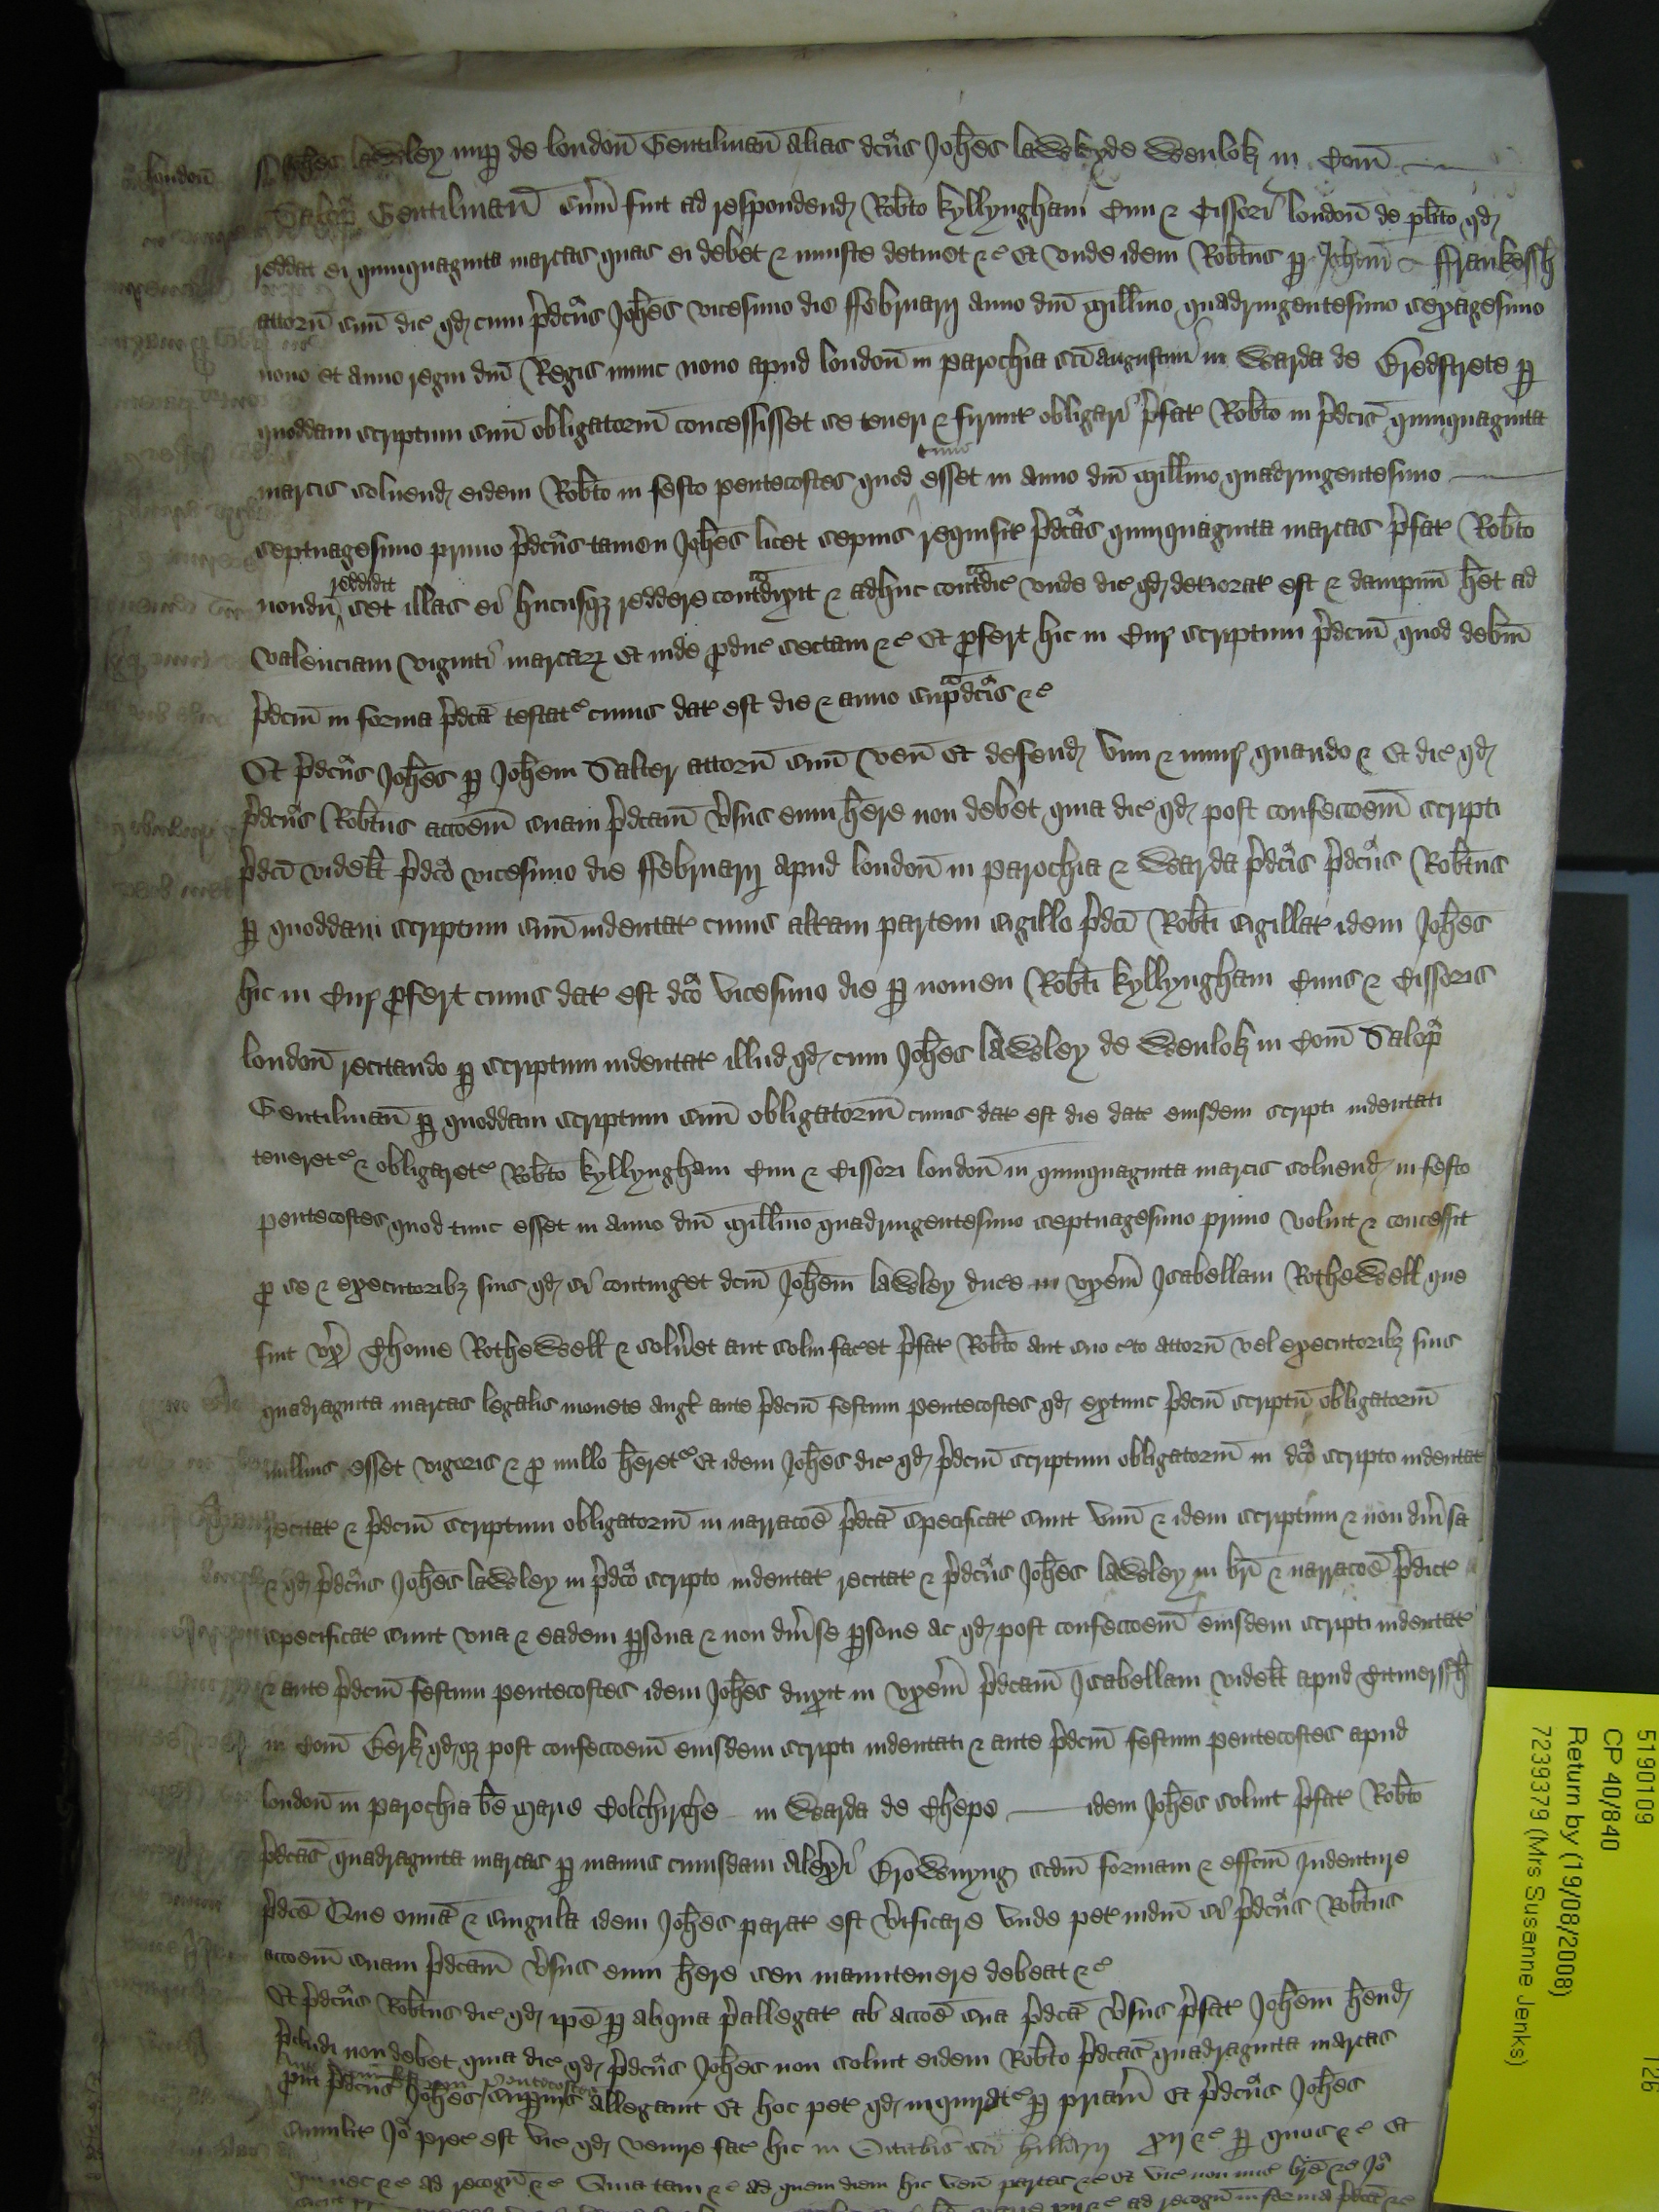 london̄
Joh̄es lawley nup de london̄ Gentilman̄ alias dc̄us Joh̄es lawley de Wenlok in Com̄
Salop Gentilman̄ sum̄ fuit ad respondend Rob̄to kyllyngham Ciui & Cissori london̄ de pl̄ito qd
reddat ei quinquaginta marcas quas ei debet & iniuste detinet &c Et vnde idem Rob̄tus p Joh̄em ffrankessh
attorn̄ suū dic qd cum p̄dc̄us Joh̄es vicesimo die ffebruarij anno dn̄i Mill̄imo quadringentesimo sexagesimo
nono et anno regni dn̄i Regis nunc nono apud london̄ in parochia sc̄i Augustini in Warda de Bredstrete p
quoddam scriptum suū obligatoriū concessisset se teneri & firmit obligari p̄fat Rob̄to in p̄dc̄is quinquaginta
marcis soluend eidem Rob̄to in festo pentecostes quod tunc esset in anno dn̄i Mill̄imo quadringentesimo
septuagesimo primo p̄dc̄us tamen Joh̄es licet sepius requisit p̄dc̄as quinquaginta marcas p̄fat Rob̄to
nondū reddidit set illas ei hucusq reddere contradixit & adhuc contradic vnde dic qd deteriorat est & dampnū h̄et ad
valenciam viginti marcar Et inde produc sectam &c Et profert hic in Cur scriptum p̄dc̄m quod debm̄
p̄dc̄m in forma p̄dc̄a testat cuius dat est die & anno supradc̄is &c
Et p̄dc̄us Joh̄es p Joh̄em Salter attorn̄ suū ven̄ Et defend vim & iniur quando & Et dic qd
p̄dc̄us Rob̄tus acc̄oem suam p̄dc̄am v̄sus eum h̄ere non debet quia dic qd post confecc̄oem scripti
p̄dc̄i videlt p̄dc̄o vicesimo die ffebruarij apud london̄ in parochia & Warda p̄dc̄is p̄dc̄us Rob̄tus
p quoddam scriptum suū indentat cuius alteram partem sigillo p̄dc̄i Rob̄ti sigillat idem Joh̄es
hic in Cur profert cuius dat est dc̄o vicesimo die p nomen Rob̄ti kyllyngham Ciuis & Cissoris
london̄ recitando p scriptum indentat illud qd cum Joh̄es lawley de Wenlok in Com̄ Salop
Gentilman̄ p quoddam scriptum suū obligatoriū cuius dat est die dat eiusdem scripti indentati
teneret & obligaret Rob̄to kyllyngham Ciui & Cissori london̄ in quinquaginta marcis soluend in festo
pentecostes quod tunc esset in anno dn̄i Mill̄imo quadringentesimo septuagesimo primo voluit & concessit
pro se & executorib suis qd si continget dc̄m Joh̄em lawley duce in vxem̄ Isabellam Rothewell que
fuit vx Thome Rothewell & solu̅et aut solui facet p̄fat Rob̄to aut suo c̄to attorn̄ vel executorib suis
quadraginta marcas legalis monete Angl ante p̄dc̄m festum pentecostes qd extunc p̄dc̄m scriptū obligatoriū
nullius esset vigoris & pro nullo h̄eret Et idem Joh̄es dic qd p̄dc̄m scriptum obligatoriū in dc̄o scripto indentat
recitat & p̄dc̄m scriptum obligatoriū in narrac̄oe p̄dc̄a specificat sunt vnū & idem scriptum & non diu̅sa
& qd p̄dc̄us Joh̄es lawley in p̄dc̄o scripto indentat recitat & p̄dc̄us Joh̄es lawley in bri & narrac̄oe p̄dict
specificat sunt vna & eadem psona & non diu̅se psone ac qd post confecc̄oem eiusdem scripti indentat
& ante p̄dc̄m festum pentecostes idem Joh̄es duxit in vxem̄ p̄dc̄am Isabellam videlt apud Titmerssh
in Com̄ Berk qdq post confecc̄oem eiusdem scripti indentati & ante p̄dc̄m festum pentecostes apud
london̄ in parochia be Marie Colchirche in Warda de Chepe idem Joh̄es soluit p̄fat Rob̄to
p̄dc̄as quadraginta marcas p manus cuiusdam Alexi Brownyng scdm̄ formam & effc̄m Indenture
p̄dc̄e Que om̄ia & singula idem Joh̄es parat est v̄ificare vnde pet iudm̄ si p̄dc̄us Rob̄tus
acc̄oem suam p̄dc̄am v̄sus eum h̄ere seu manutenere debeat &c
Et p̄dc̄us Rob̄tus dic qd ip̄e p aliqua p̄allegat ab acc̄oe sua p̄dc̄a v̄sus p̄fat Joh̄em h̄end
p̄cludi non debet quia dic qd p̄dc̄us Joh̄es non soluit eidem Rob̄to p̄dc̄as quadraginta marcas
ante p̄dc̄m festum Pentecostes
put p̄dc̄us Joh̄es supius allegauit Et hoc pet qd inquirat p pr̄iam Et p̄dc̄us Joh̄es
similit Jo prec est vic qd venire fac hic in Octabis sc̄i Hillarij xij &c p quos &c Et
qui nec &c ad recogn̄ &c Quia tam &c ad quem diem hic ven̄ partes &c Et vic non mis bre &c Jo
5190109
CP 40/840
Return by (19/08/2008)
7239379 (Mrs Susanne Jenks)
126